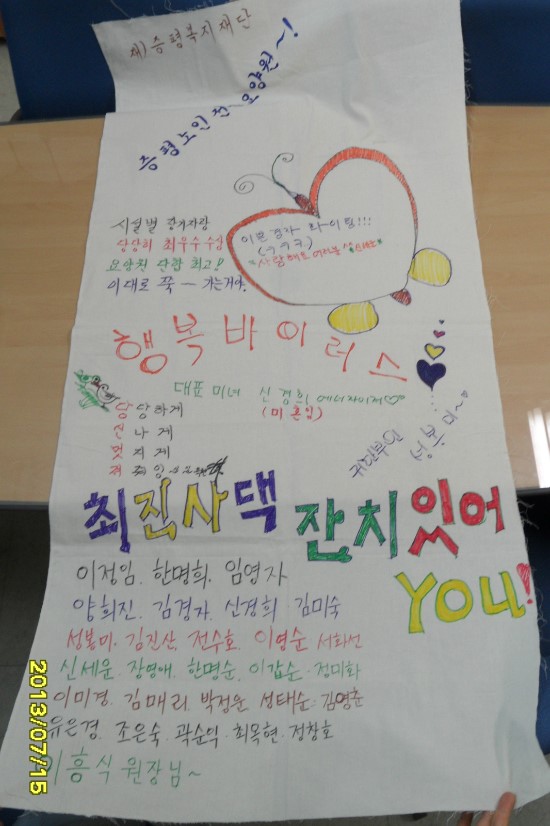 재)증평복지재단
증평노인전~요양원~!
시설별 장기자랑
당당히 최우수 수상
요양원 단합 최고!
이대로 쭉~ 가는거야.
이쁜 경자 화이팅!!!
(ㅋㅋㅋ)
사랑해요 여러분
행복바이러스
대표 미녀 신경희 에너자이저♡♡
(미혼임)
당당하게
신나게
멋지게
귀연부인
성봉미~
최진사댁
잔치있어
YOU!
이정임. 한명희. 임영자
양희진. 김경자. 신경희 김미숙
성봉미. 김진산. 전수호. 이영순. 서화선
신세운. 장영애. 한명순. 이갑순. 정미화
이미경. 김매리. 박정운. 성태순. 김영춘
유은경. 조은숙. 곽순익. 최목현. 정창호
이흥식 원장님~
2013/07/15